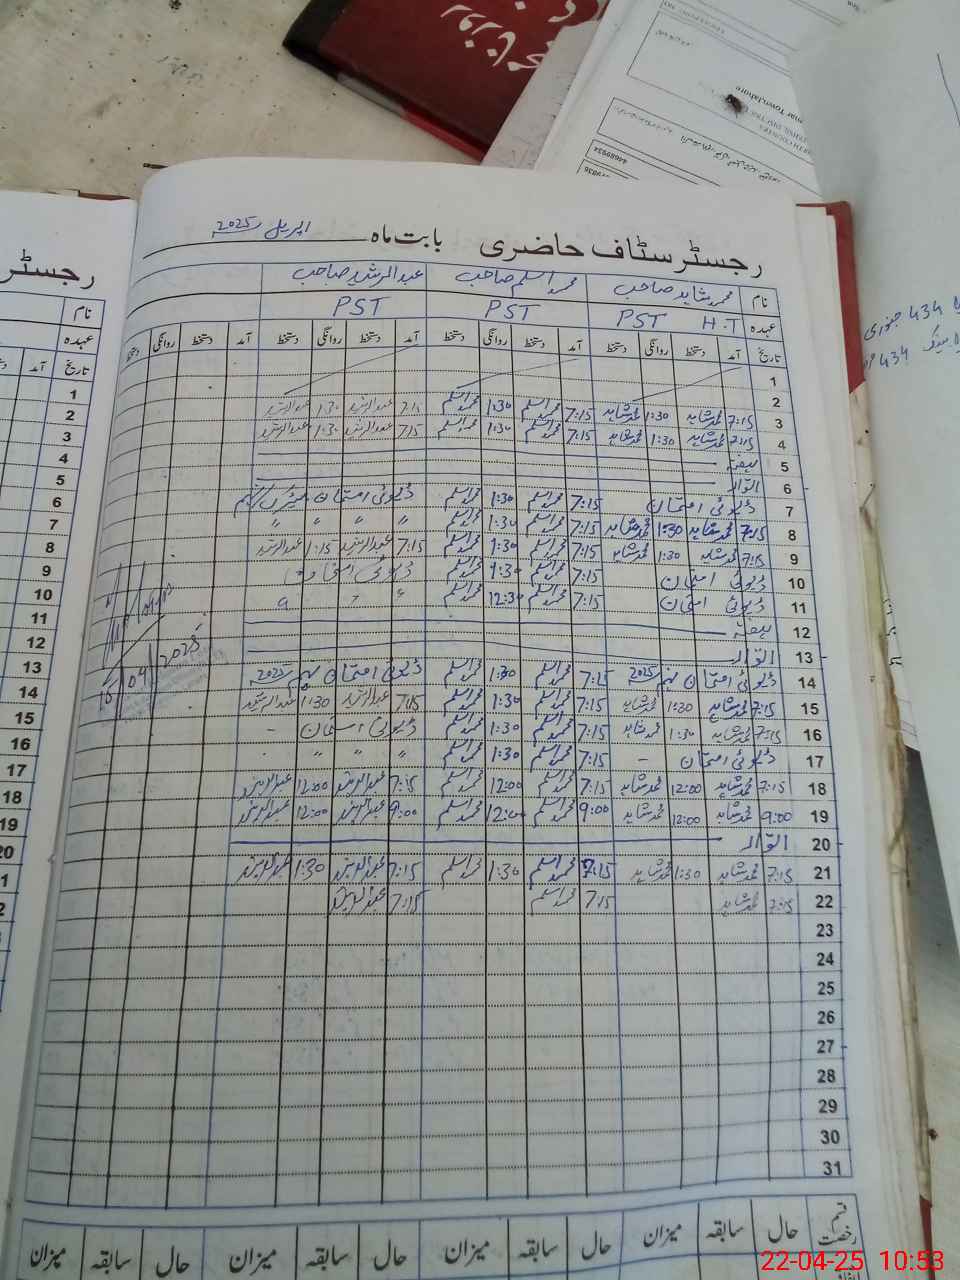 رجسٹر سٹاف حاضری بابت ماہ اپریل 2025
نام محمد شاہد صاحب محمد اسلم صاحب عبدالرشید صاحب
عہدہ PST H.T PST PST
تاریخ آمد دستخط روانگی دستخط آمد دستخط روانگی دستخط آمد دستخط روانگی دستخط آمد دستخط روانگی دستخط
1
2
3 7:15 محمد شاہد 1:30 محمد شاہد 7:15 محمد اسلم 1:30 محمد اسلم 7:15 عبدالرشید 1:30 عبدالرشید
4 7:15 محمد شاہد 1:30 محمد شاہد 7:15 محمد اسلم 1:30 محمد اسلم 7:15 عبدالرشید 1:30 عبدالرشید
5 ہفتہ
6 اتوار
7 ڈیوٹی امتحان 7:15 محمد اسلم 1:30 محمد اسلم ڈیوٹی امتحان
8 7:15 محمد شاہد 1:30 محمد شاہد 7:15 محمد اسلم 1:30 محمد اسلم " " "
9 7:15 محمد شاہد 1:30 محمد شاہد 7:15 محمد اسلم 1:30 محمد اسلم 7:15 عبدالرشید 1:15 عبدالرشید
10 ڈیوٹی امتحان 7:15 محمد اسلم 1:30 محمد اسلم ڈیوٹی امتحان
11 ڈیوٹی امتحان 7:15 محمد اسلم 12:30 محمد اسلم " "
12 ہفتہ
13 اتوار
14 ڈیوٹی امتحان نہم 2025 7:15 محمد اسلم 1:30 محمد اسلم ڈیوٹی امتحان نہم 2025
15 7:15 محمد شاہد 1:30 محمد شاہد 7:15 محمد اسلم 1:30 محمد اسلم 7:15 عبدالرشید 1:30 عبدالرشید
15/04/2025
16 7:15 محمد شاہد 1:30 محمد شاہد 7:15 محمد اسلم 1:30 محمد اسلم ڈیوٹی امتحان -
17 ڈیوٹی امتحان - 7:15 محمد اسلم 1:30 محمد اسلم " "
18 7:15 محمد شاہد 12:00 محمد شاہد 7:15 محمد اسلم 12:00 محمد اسلم 7:15 عبدالرشید 12:00 عبدالرشید
19 9:00 محمد شاہد 12:00 محمد شاہد 9:00 محمد اسلم 12:00 محمد اسلم 9:00 عبدالرشید 12:00 عبدالرشید
20 اتوار
21 7:15 محمد شاہد 1:30 محمد شاہد 7:15 محمد اسلم 1:30 محمد اسلم 7:15 عبدالرشید 1:30 عبدالرشید
22 7:15 محمد شاہد 7:15 محمد اسلم 7:15 عبدالرشید
23
24
25
26
27
28
29
30
31
قسم رخصت حال سابقہ میزان حال سابقہ میزان حال سابقہ میزان حال سابقہ میزان
رجسٹر
نام
عہدہ
تاریخ آمد
1
2
3
4
5
6
7
8
9
10
11
12
13
14
15
16
17
18
19
20
434 جنوری
434
44689934
mar Town,lahore
22-04-25 10:53